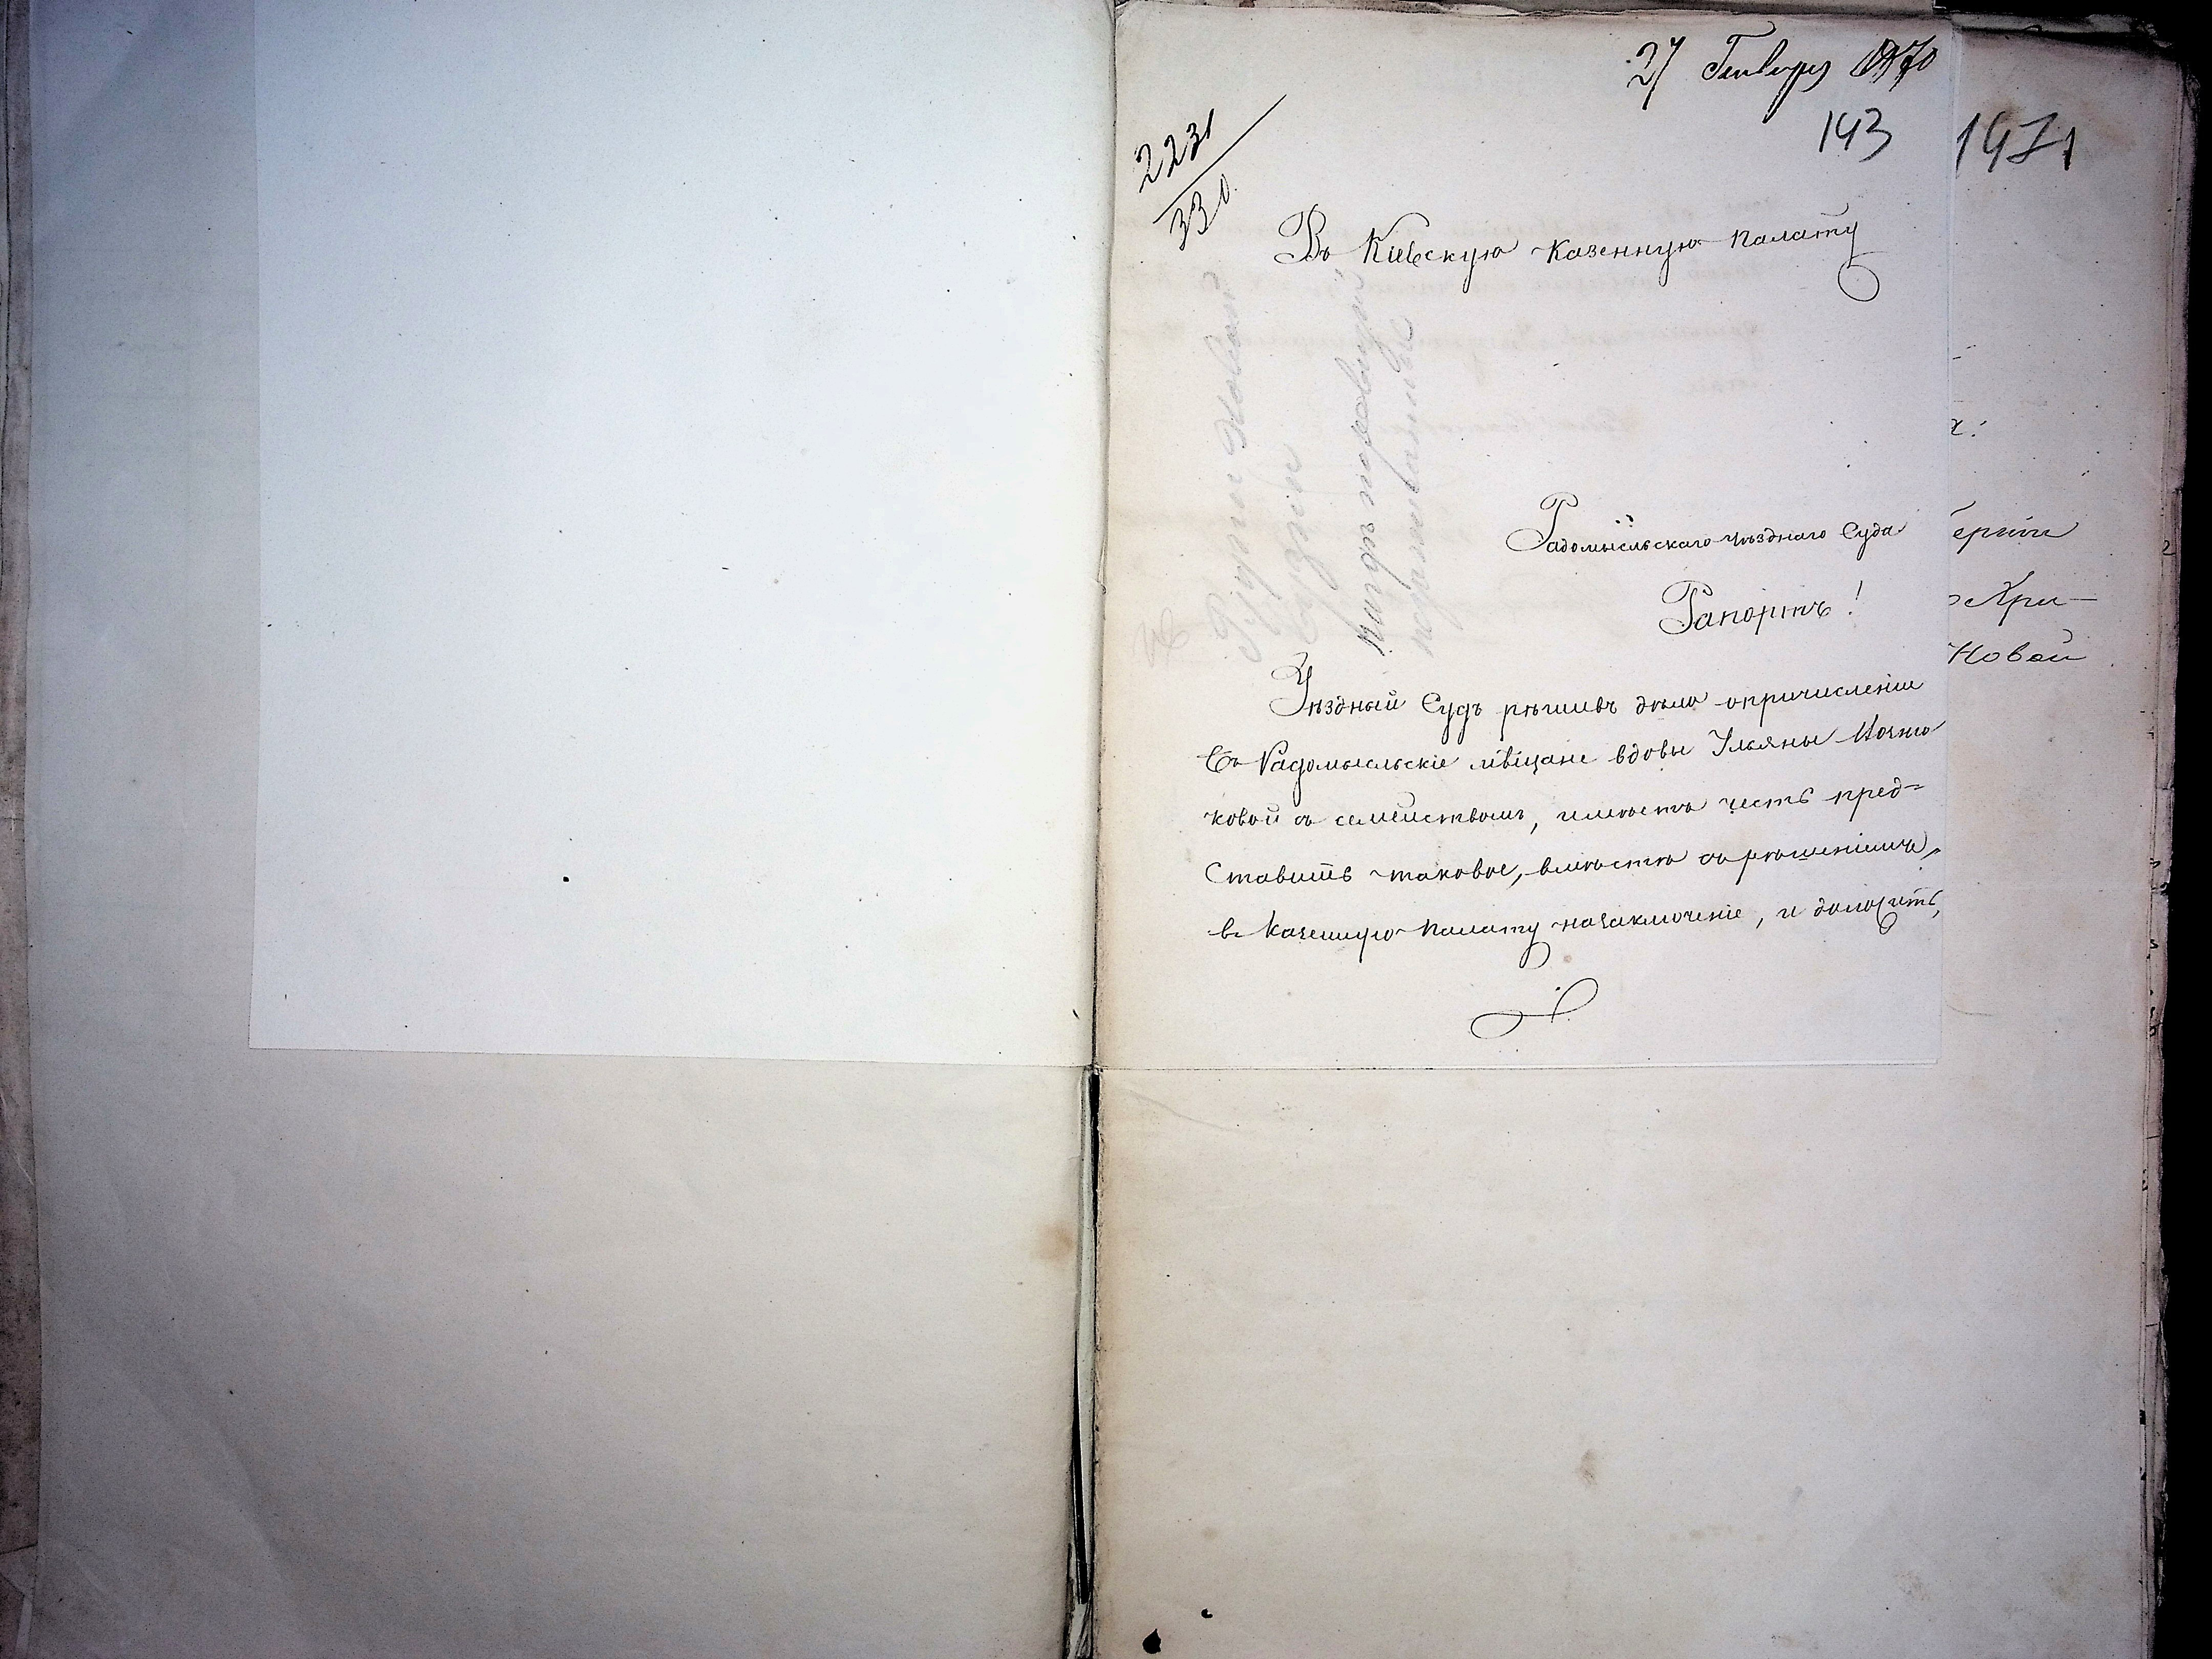 27 Генваря 1870
143
1471
2231
330
Въ Кіевскую Казенную Палату
Радомысльскаго уѣзднаго Суда
Рапортъ!
Уѣздный Судъ рѣшивъ дѣло опричисленіи
въ Радомысльскіе мѣщане вдовы Ульяны
ковой съ семействомъ, имѣетъ честь пред=
ставить таковое, вмѣстѣ съ рѣшеніемъ,
въ Казенную Палату назаключеніе, и
ерніи
Хри-
Новой